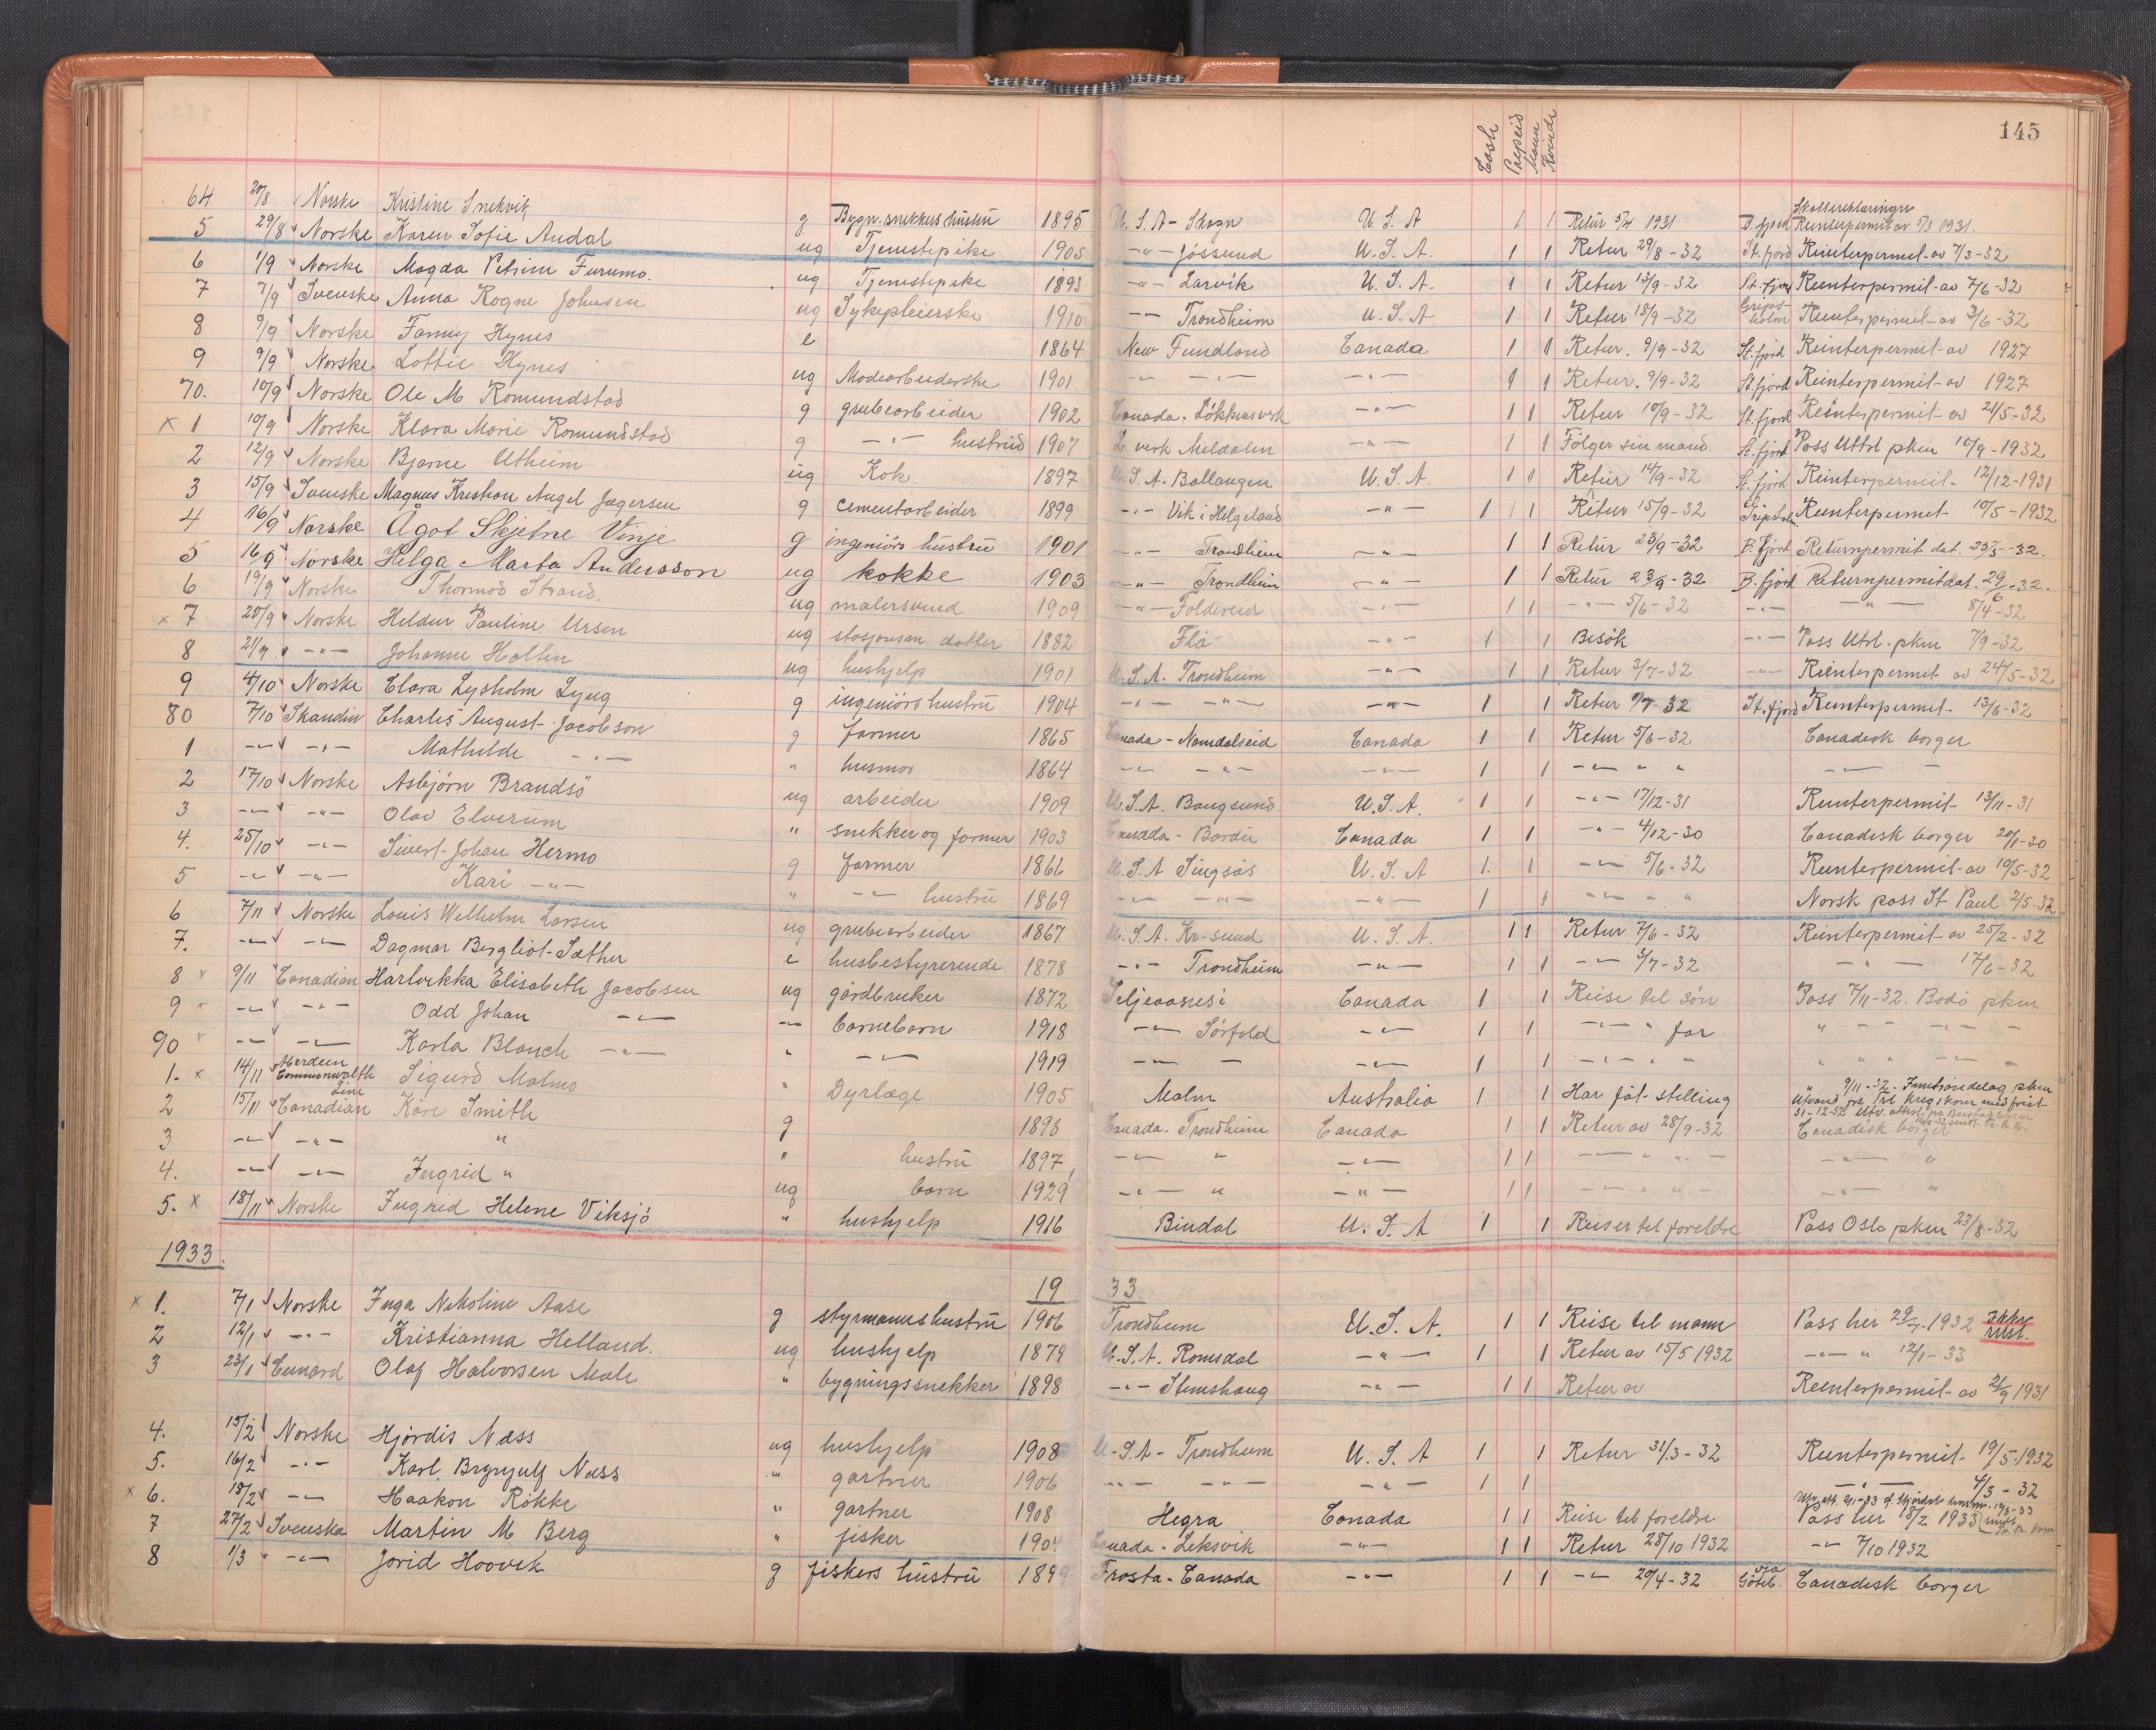 145
Cash Prepeid Mann Kvinde
64 29/8 Norske Kristine Snekvik g Bygn. snekkers hustru 1895 U.S.A - Skogn U.S.A 1 1 Retur 5/4 1931 B.fjord Reinterpermit av 5/3 1931.
5 29/8 Norske Karen Sofie Audal ug Tjenestepike 1905 -"- Jössund U.S.A. 1 1 Retur 29/8-32 St.fjord Reinterpermit av 7/3-32
6 1/9 Norske Magda Petrine Furumo. ug Tjenestepike 1893 -"- Larvik U.S.A. 1 1 Retur 13/9-32 St.fjord Reinterpermit av 7/6-32
7 7/9 Svenske Anna Rogne Johnsen ug Sykepleierske 1910 -"- Trondheim U.S.A 1 1 Retur 18/9-32 Gripsholm Reinterpermit av 3/6-32
8 9/9 Norske Fanny Hynes e 1864 New Fundland Canada 1 1 Retur. 9/9-32 St.fjord Reinterpermit av 1927
9 9/9 Norske Lottie Hynes ug Modearbeiderske 1901 -"- -"- -"- 1 1 Retur. 9/9-32 St.fjord Reinterpermit av 1927
70. 10/9 Norske Ole M Romundstad g grubearbeider 1902 Canada. Lökkensverk -"- 1 1 Retur 10/9-32 St.fjord Reinterpermit av 21/5-32
x 1 10/9 Norske Klara Marie Romundstad g -"- hustru 1907 L.verk Meldalen -"- 1 1 Følger sin mand. St.fjord Pass Uttrl pken 10/9-1932
2 12/9 Norske Bjarne Utheim ug Kok 1897 U.S.A. Ballangen U.S.A. 1 1 Retur 14/9-32 St.fjord Reinterpermit - 12/12-1931
3 15/9 Svenske Magnus Kristian Angel Jægersen g cementarbeider 1899 -"- Vik i Helgeland -"- 1 1 Retur 15/9-32 Gripsholm Reinterpermit 10/5-1932
4 16/9 Norske Ågot Skjetne Vinje g ingeniörs hustru 1901 -"- Trondheim -"- 1 1 Retur 23/9-32 B.fjord Returnpermit dat. 25/5-32.
5 16/9 Norske Helga Marta Andersson ug kokke 1903 -"- Trondheim -"- 1 1 Retur 23/9-32 B.fjord Returnpermit dat. 29/6-32.
6 19/9 Norske Thormod Strand. ug malersvend 1909 -"- Foldereid -"- 1 1 -"- 5/6-32 -"- -"- 8/4-32
x 7 20/9 " Norske Heldur Pauline Ursen ug stasjonsm. datter 1882 Flå -"- 1 1 Besök -"- Pass Utrl. pken 7/9-32
8 21/9 -"- Johanne Holten ug hushjelp 1901 U.S.A. Trondheim -"- 1 1 Retur 3/7-32 -"- Reinterpermit av 24/5-32
9 4/10 Norske Clara Lysholm Lyng g ingeniörs hustru 1904 -"- -"- -"- 1 1 Retur 9/7 32 St.fjord Reinterpermit - 13/6-32
80 7/10 Skandin Charles August Jacobson g farmer 1865 Canada - Namdalseid Canada 1 1 Retur 5/6-32 Canadisk borger
1 -"- -"- Mathilde -"- " husmor 1864 -"- -"- -"- 1 1 -"- " " -"- -
2 17/10 Norske Asbjörn Brandsö ug arbeider 1909 U.S.A. Bangsund U.S.A. 1 1 -"- 17/12-31 Reinterpermit - 13/11-31
3 -"- -"- Olav Elverum " snekker og farmer 1903 Canada - Bardu Canada 1 1 -"- 4/12-30 Canadisk borger 20/1-30
4. 25/10 -"- Sivert Johan Hermo g farmer 1866 U.S.A Singsås U.S.A 1. 1 -"- 5/6-32 Reinterpermit av 10/5-32
5 -"- -"- Kari -"- " -"- hustru 1869 -"- -"- -"- 1 1 -"- " " Norsk pass St Paul 2/5-32
6 7/11 Norske Louis Wilhelm Larsen ug grubearbeider 1867 U.S.A. Kr-sund U.S.A. 1 1 Retur 7/6-32 Reinterpermit av 25/2-32
7. -"- -"- Dagmar Bergliot Sæther e husbestyrerende 1878 -"- Trondheim -"- 1 1 -"- 3/7-32 -"- 17/6-32
8 x 9/11 Canadian Harlvikka Elisabeth Jacobsen ug gårdbruker 1872 Canada 1 1 Reise til sön Pass 7/11-32. Bodö pken
9 x -"- -"- Odd Johan -"- -"- barnebarn 1918 -"- Sörfold -"- 1 1 -"- " far " - " - -"- -
90 x -"- -"- Karla Blanch -"- " -"- 1919 -"- - -"- 1 1 -"- " - " " " -"- -
1. x 14/11 Aberdeen Commonwelth Line Sigurd Malmo " Dyrlæge 1905 Malm Australia 1 1 Har fåt stilling " 9/11-32 -
2 15/11 Canadian Kåre Smith g 1898 Canada. Trondheim Canada 1 1 Retur av 28/9-32 Canadisk borger
3 -"- -"- " " hustru 1897 -"- " -"- 1 1 -"- " " - -"- "
4. -"- -"- Ingrid " ug barn 1929 -"- " -"- 1 1 -"- " " - -"- "
5. x 18/11 Norske Ingrid Helene Viksjö " hushjelp 1916 Bindal U.S.A 1 1 Reiser til foreldre Pass Oslo pken 23/8-32
1933.
19 33
x 1. 7/1 Norske Inga Nikoline Aase g styrmannshustru 1906 Trondheim U.S.A. 1 1 Reise til mann Pass her 29/7.1932 Ikke reist.
2 12/1 -"- Kristianna Helland. ug hushjelp 1879 U.S.A. Romsdal -"- 1 1 Retur av 15/5 1932 -"- " 12/1-33
3 23/1 Cunard Olaf Halvorsen Male " bygningssnekker 1898 -"- Stemshaug -"- 1 1 Retur av Reenterpermit av 21/9 1931
4. 15/2 Norske Hjördis Næss ug hushjelp 1908 U.S.A - Trondheim U.S.A 1 1 Retur 31/3-32 Reenterpermit - 19/5-1932
5. 16/2 -"- Karl Brynjulf Næss " gartner 1906 -"- -"- -"- 1 1 -"- 4/3-32
x 6. 18/2 -"- Haakon Rökke " gartner 1908 Hegra Canada 1 1 Reise til foreldre Pass her 18/2 1933
7 27/2 Svenska Martin M Berg " fisker 1904 Canada - Leksvik -"- 1 1 Retur 28/10 1932 -"- 7/10 1932
8 1/3 " -"- Jorid Hoovik g fiskers hustru 1899 Frosta - Canada -"- 1 1 -"- 20/4-32 via Göteb. Canadisk borger